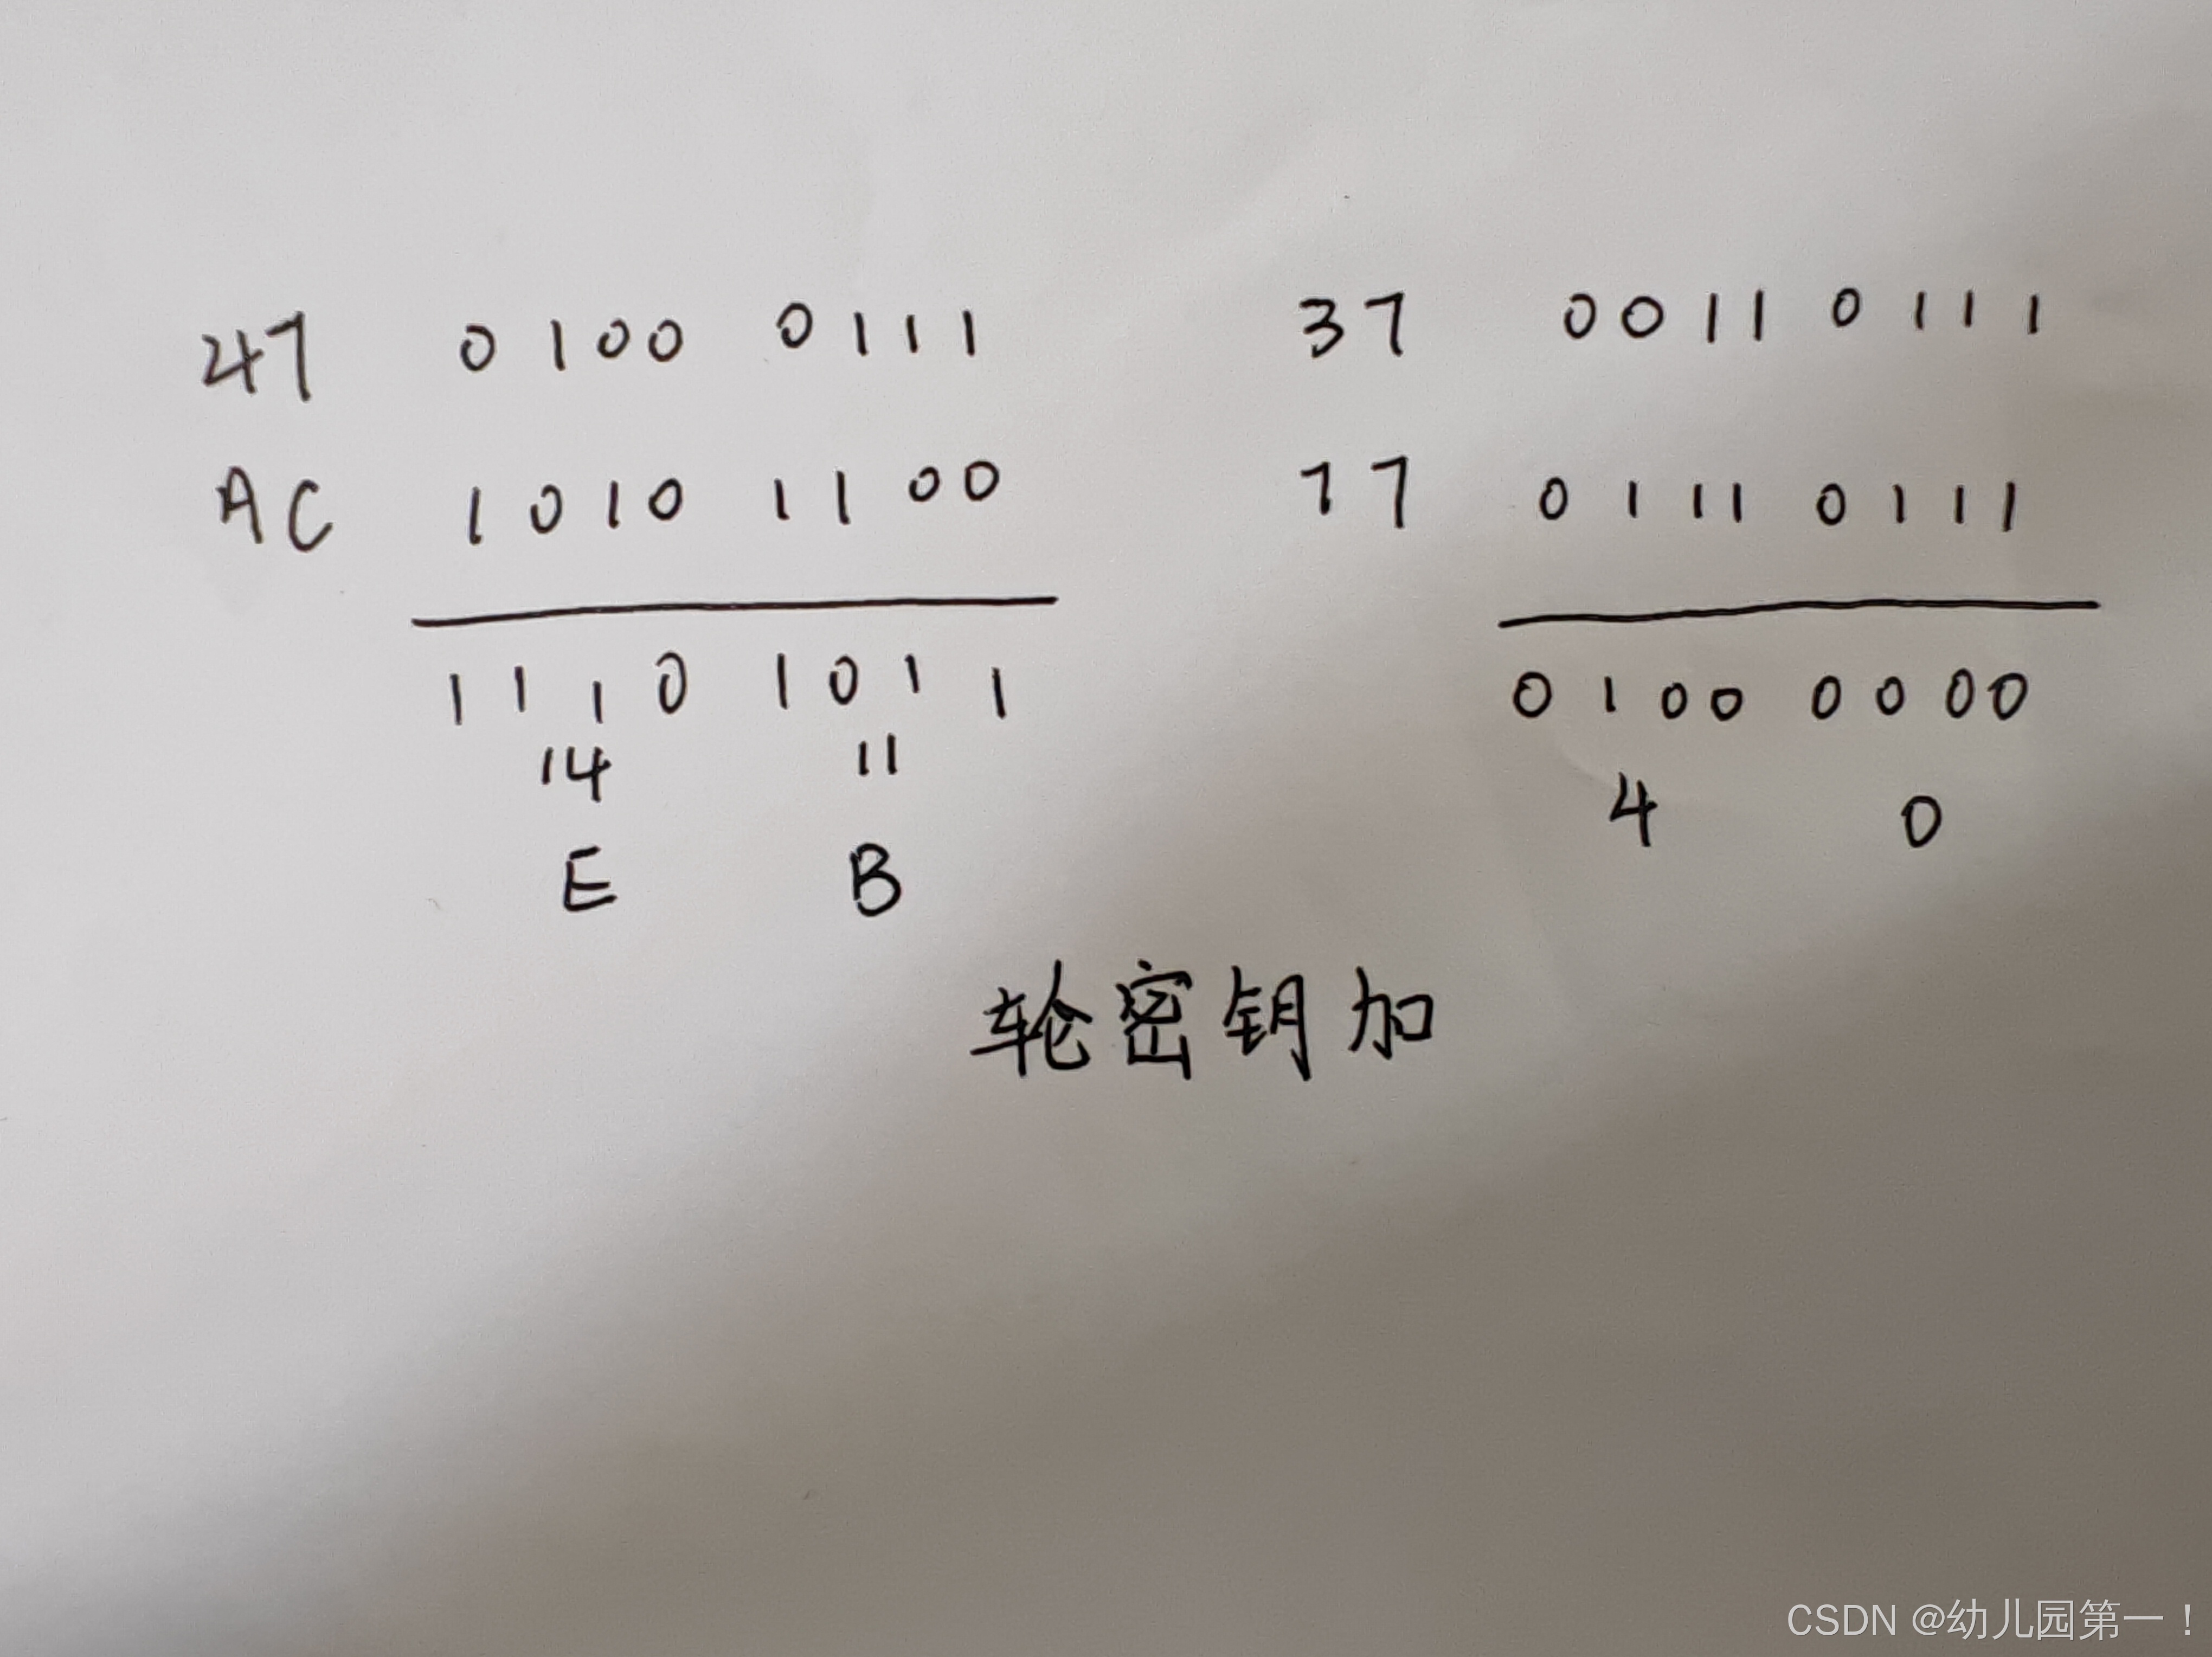 47 0100 0111
AC 1010 1100
1110 1011
14 11
E B
37 0011 0111
77 0111 0111
0100 0000
4 0
轮密钥加
CSDN @幼儿园第一！